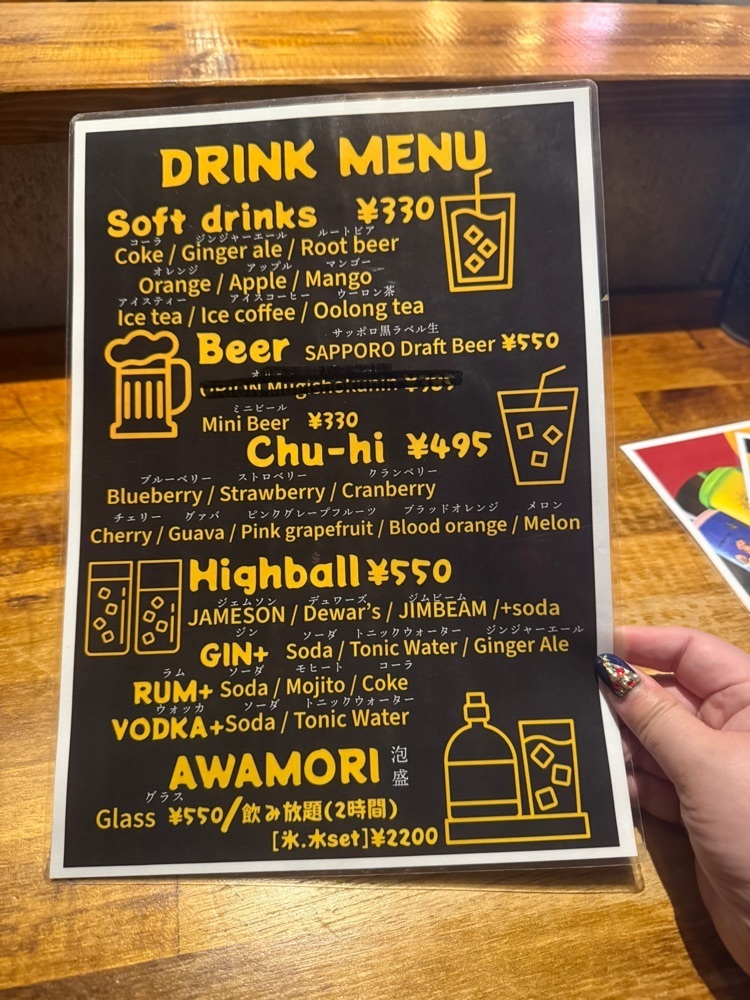 DRINK MENU
Soft drinks ¥330
コーラ ジンジャーエール ルートビア
Coke / Ginger ale / Root beer
オレンジ アップル マンゴー
Orange / Apple / Mango
アイスティー アイスコーヒー ウーロン茶
Ice tea / Ice coffee / Oolong tea
サッポロ黒ラベル生
Beer SAPPORO Draft Beer ¥550
ORION Mugishokunin
ミニビール
Mini Beer ¥330
Chu-hi ¥495
ブルーベリー ストロベリー クランベリー
Blueberry / Strawberry / Cranberry
チェリー グァバ ピンクグレープフルーツ ブラッドオレンジ メロン
Cherry / Guava / Pink grapefruit / Blood orange / Melon
Highball ¥550
ジェムソン デュワーズ ジムビーム
JAMESON / Dewar's / JIMBEAM /+soda
ジン ソーダ トニックウォーター ジンジャーエール
GIN+ Soda / Tonic Water / Ginger Ale
ラム ソーダ モヒート コーラ
RUM+ Soda / Mojito / Coke
ウオッカ ソーダ トニックウォーター
VODKA+Soda / Tonic Water
AWAMORI 泡盛
グラス
Glass ¥550/飲み放題(2時間)
[氷.水set]¥2200